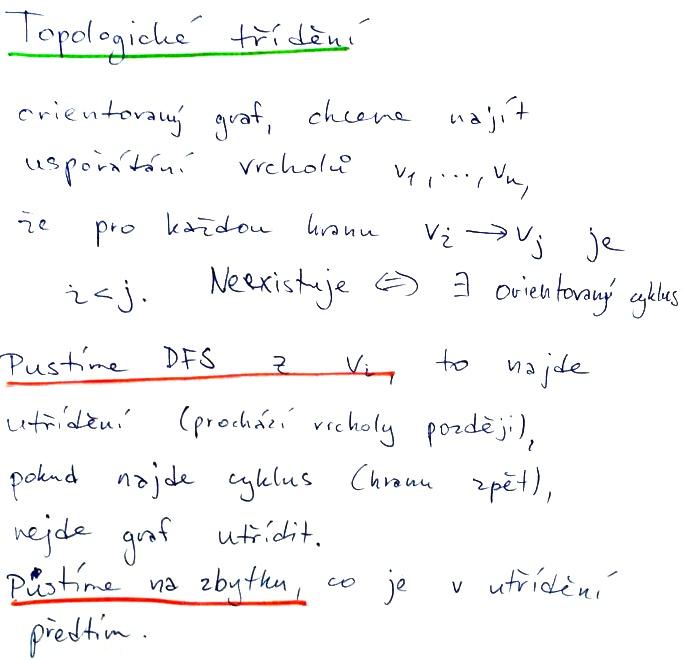 Topologické třídění
orientovaný graf, chceme najít
uspořátání vrcholů v₁, ..., vₙ,
že pro každou hranu vᵢ → vⱼ je
i < j. Neexistuje ⇔ ∃ orientovaný cyklus
Pustíme DFS z vᵢ, to najde
utřídění (prochází vrcholy později),
pokud najde cyklus (hranu zpět),
nejde graf utřídit.
Pustíme na zbytku, co je v utřídění
předtím.